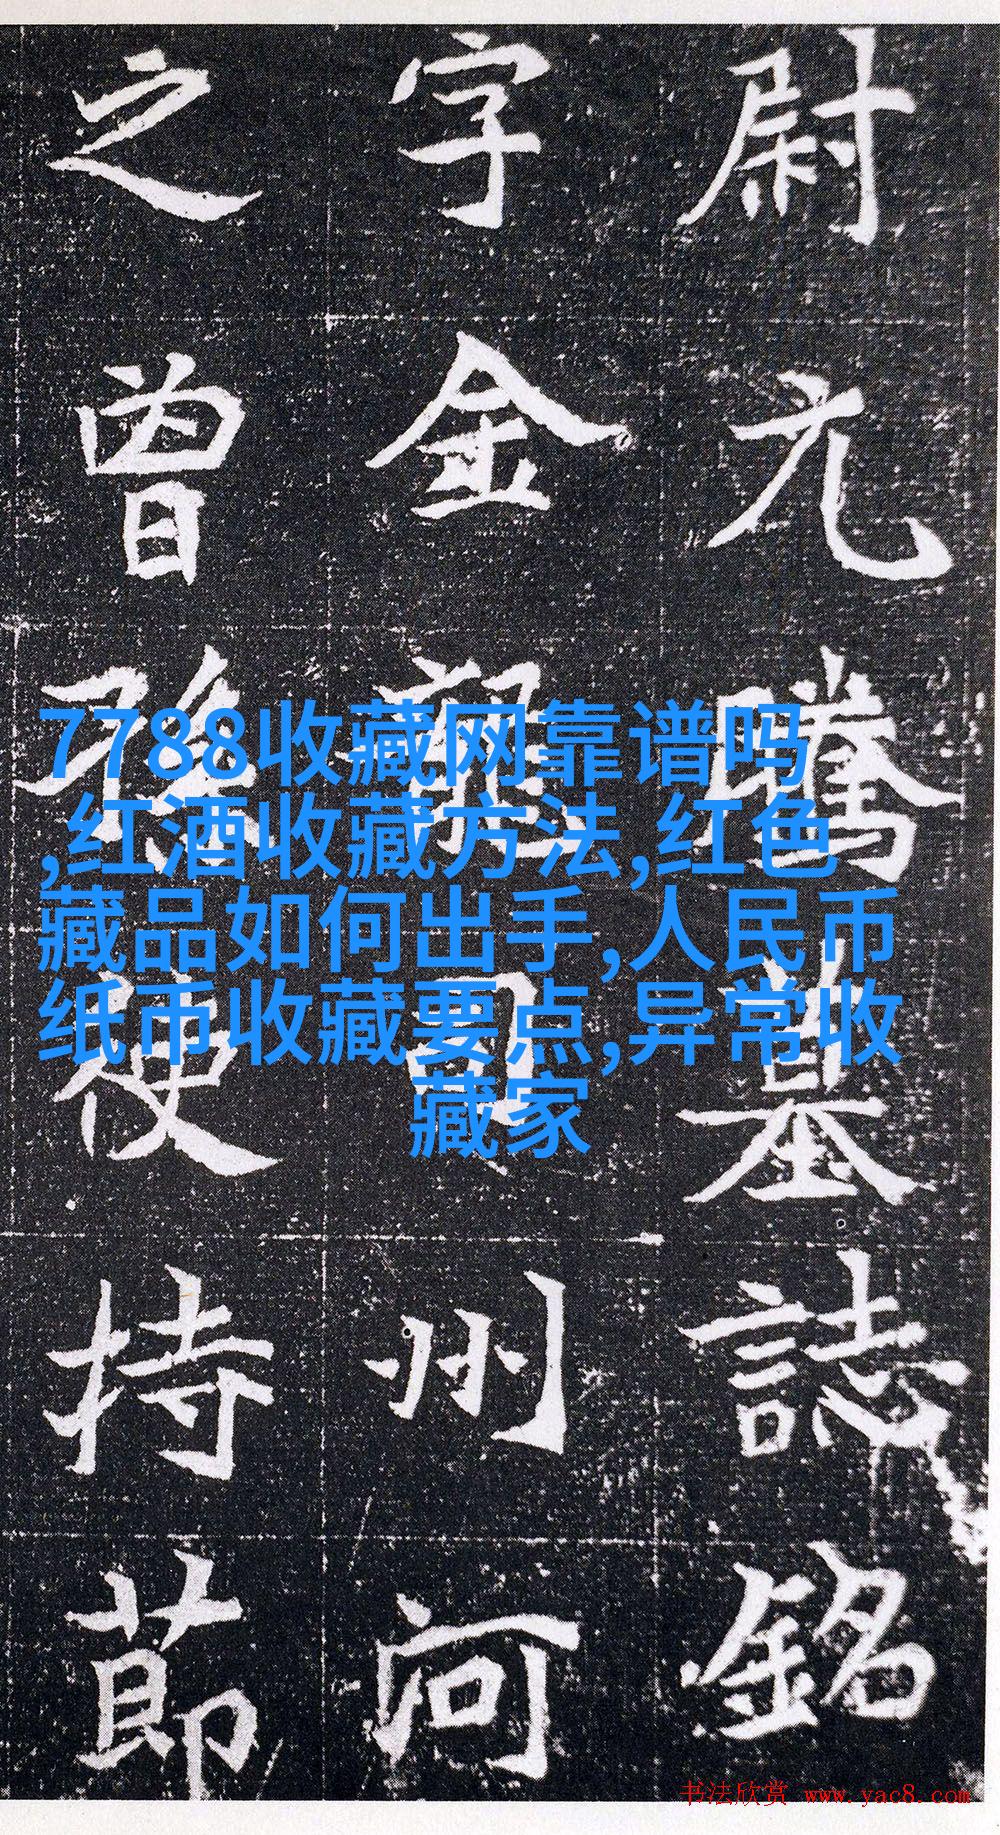 尉元騰墓誌銘
字金龍司州河
之曾孫使持節
7788收藏网靠谱吗
,红酒收藏方法,红色
藏品如何出手,人民币
纸币收藏要点,异常收
藏家
书法欣赏 www.yac8.com